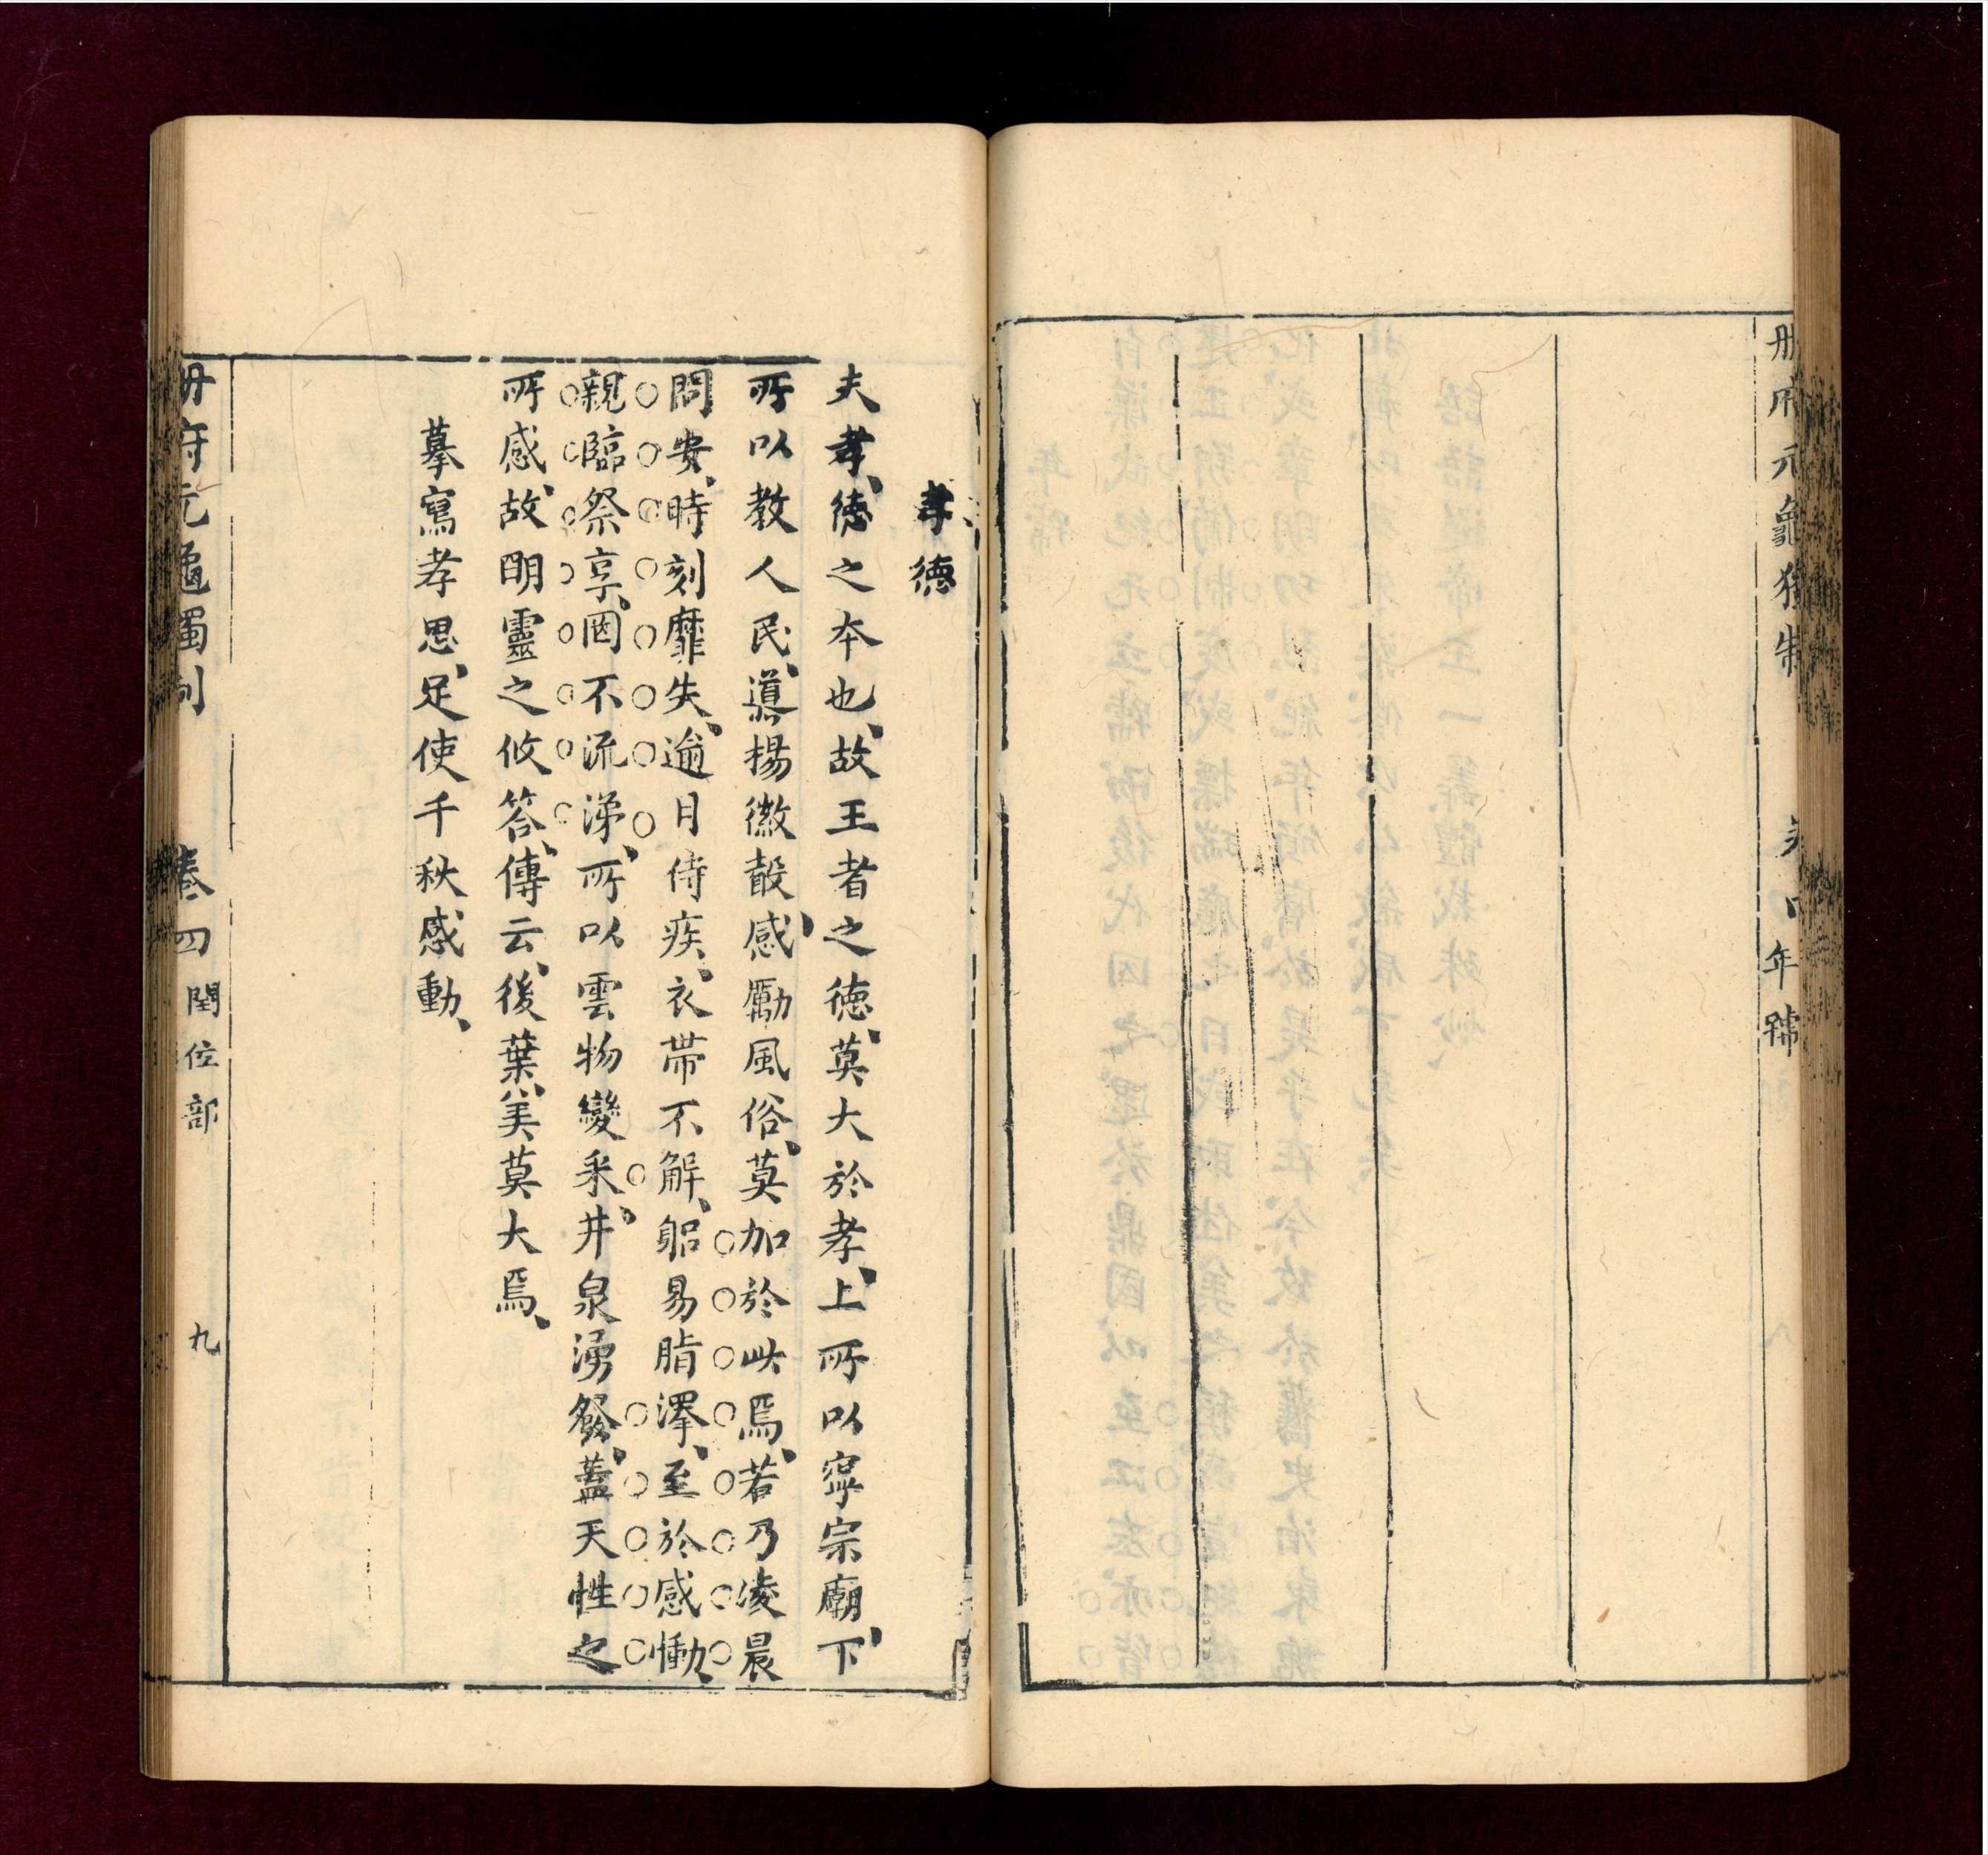 册府元龜獨制 卷四 年號
孝德
夫孝、德之本也、故王者之德、莫大於孝、上所以寧宗廟、下
所以教人民、導揚徽聲、感勵風俗、莫加於此焉、若乃凌晨
問安、時刻靡失、逾月侍疾、衣帶不解、躬易脂澤、至於感慟、
親臨祭享、罔不流涕、所以雲物變采、井泉湧發、蓋天性之
所感、故明靈之攸答、傳云、後葉、美莫大焉、
摹寫孝思、足使千秋感動、
册府元龜獨制 卷四 閏位部 九